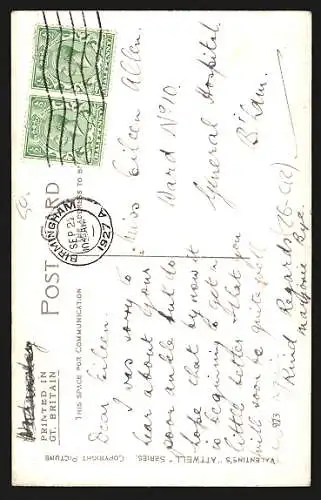 POST CARD
THIS SPACE FOR COMMUNICATION
ADDRESS TO B
PRINTED IN
GT. BRITAIN
BIRMINGHAM
SEP 22
1927
A
Dear Eileen.
I was sorry to
hear about your
poor ankle but do
hope that by now it
is beginning to get a
little better & that you
will soon be quite well
Kind Regards
Marjorie Bye.
Miss Eileen Allen.
Ward No 10.
General Hospital.
B'ham.
VALENTINE'S "ATTWELL" SERIES. COPYRIGHT PICTURE
973